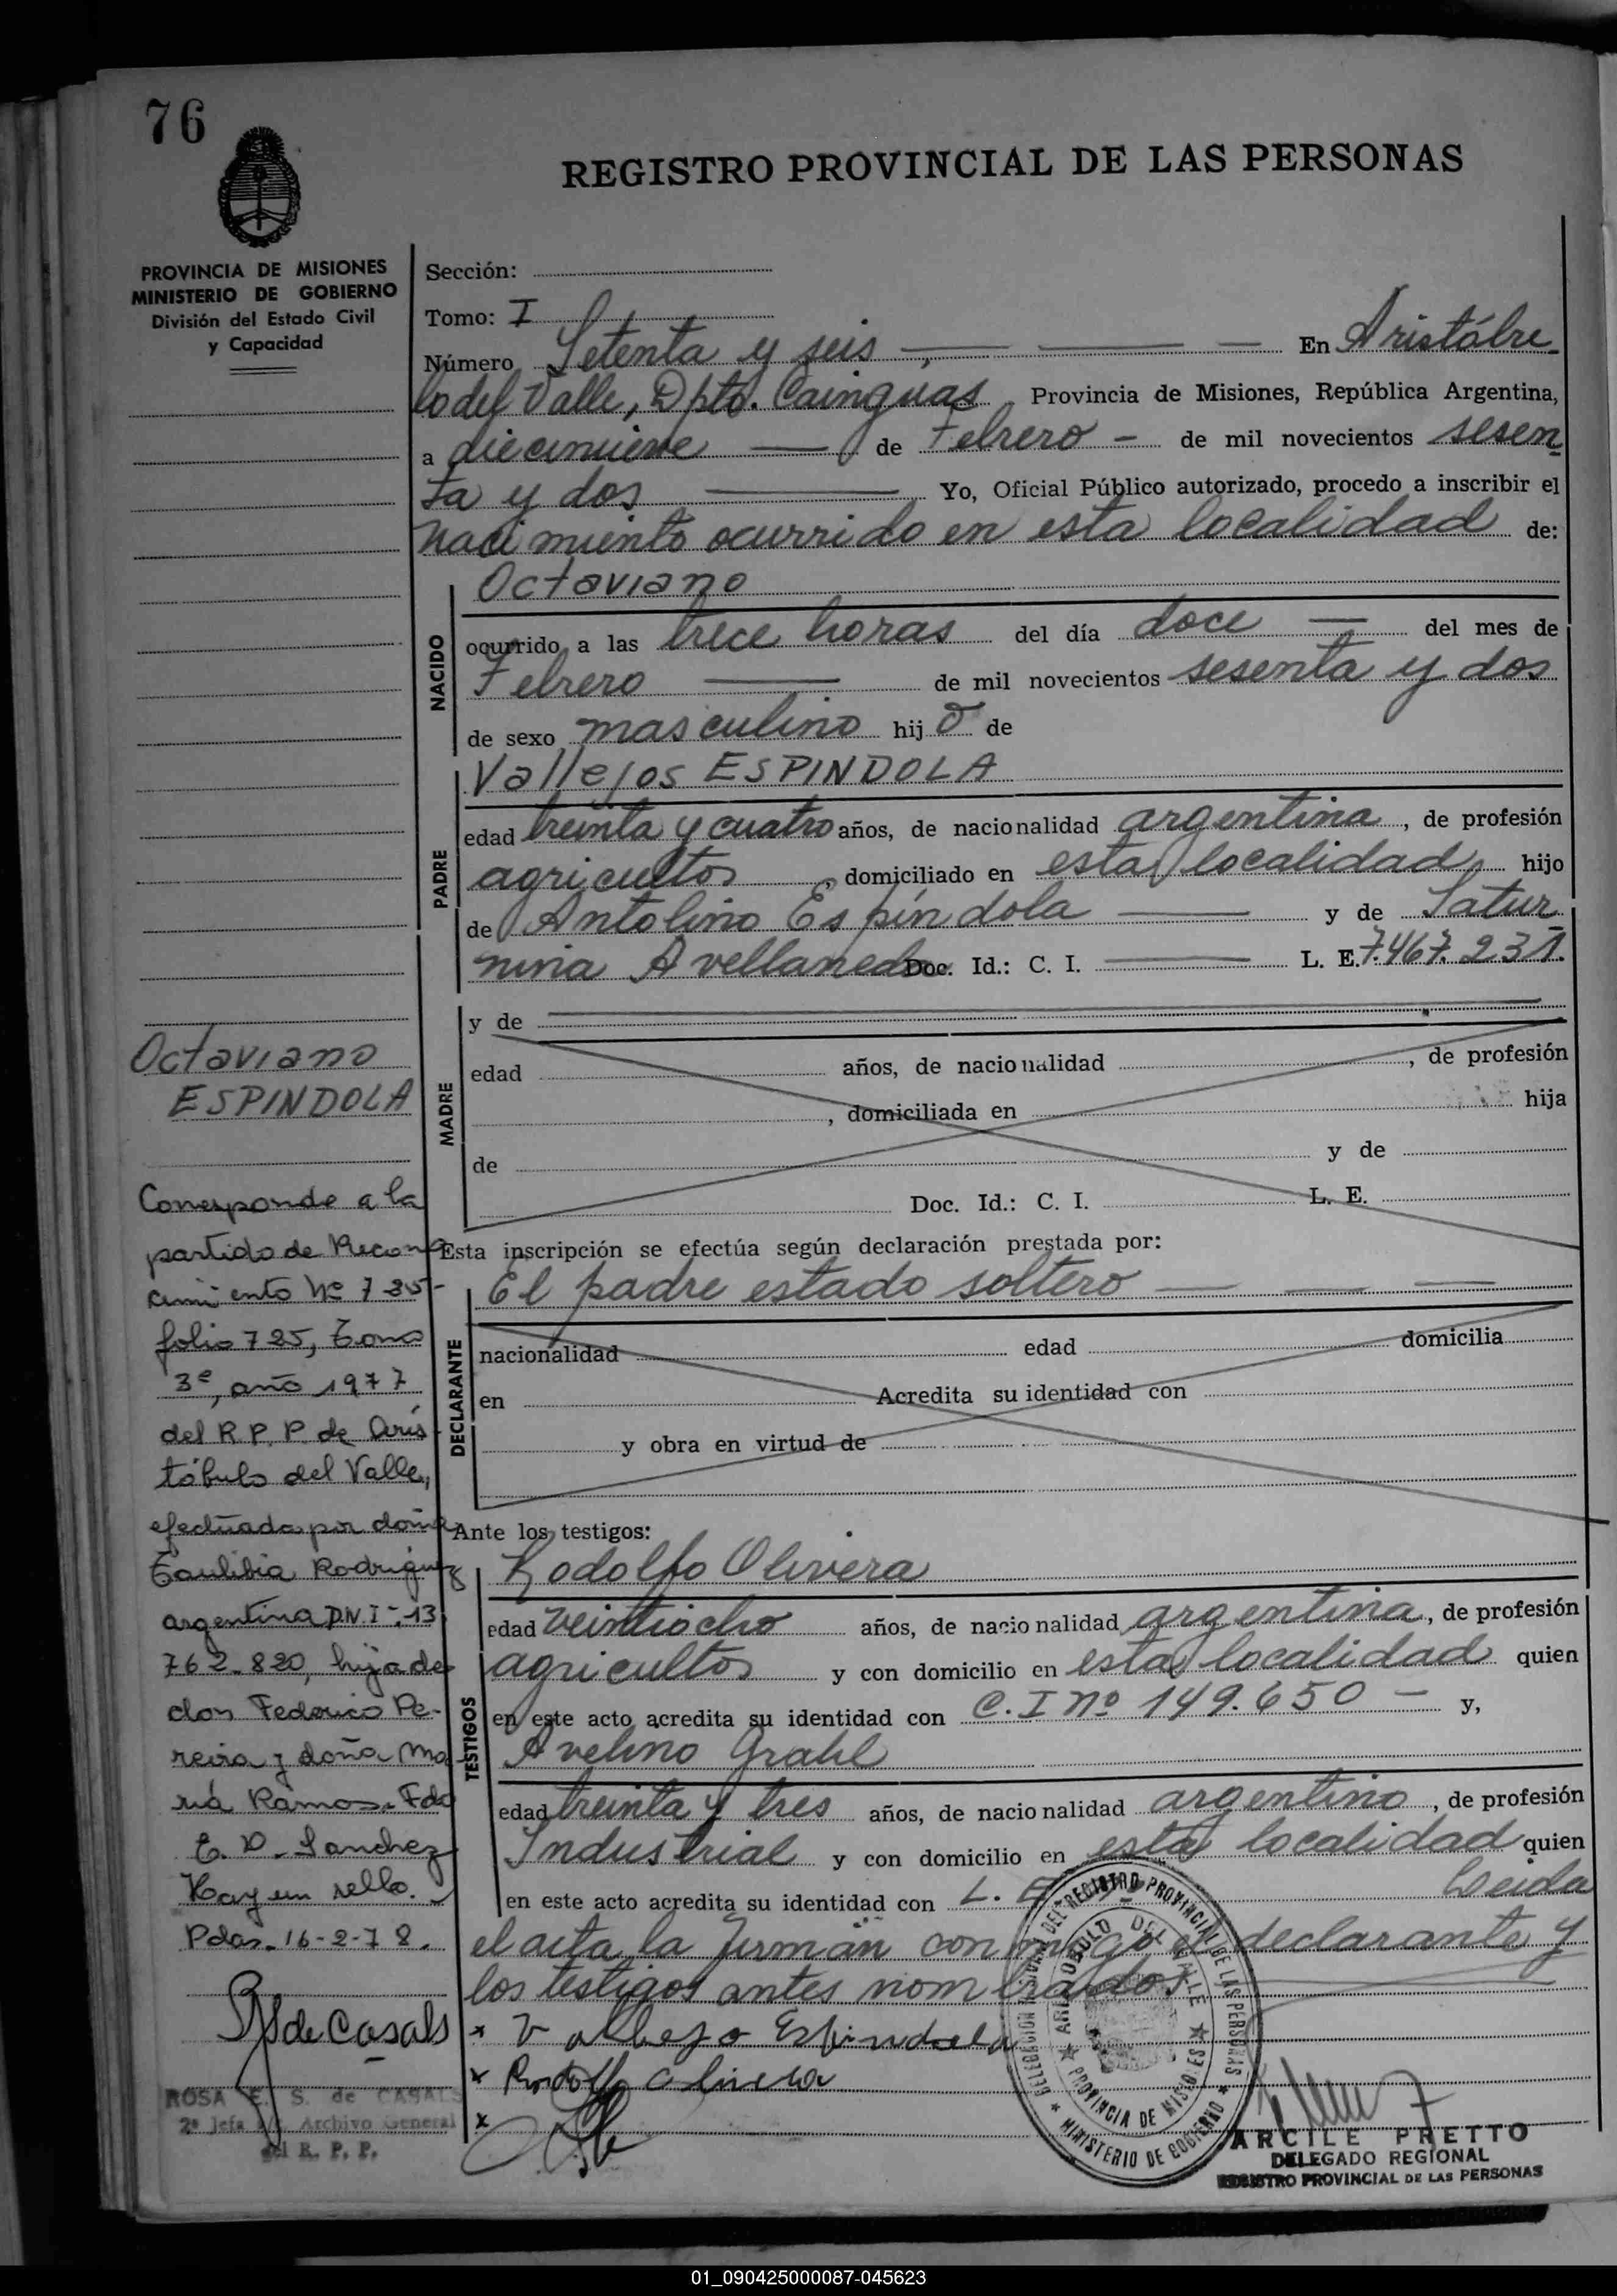 76
REGISTRO PROVINCIAL DE LAS PERSONAS
PROVINCIA DE MISIONES
MINISTERIO DE GOBIERNO
División del Estado Civil
y Capacidad
Sección:
Tomo: I
Número Setenta y seis En Aristóbu
lo del Valle, Dpto. Cainguás Provincia de Misiones, República Argentina,
a diecinueve de Febrero de mil novecientos sesen
ta y dos Yo, Oficial Público autorizado, procedo a inscribir el
nacimiento ocurrido en esta localidad de:
NACIDO
Octaviano
ocurrido a las trece horas del día doce del mes de
Febrero de mil novecientos sesenta y dos
de sexo masculino hijo de
PADRE
Vallejos ESPINDOLA
edad treinta y cuatro años, de nacionalidad argentina, de profesión
agricultor, domiciliado en esta localidad hijo
de Antolino Espíndola y de Satur
nina Avellaneda Doc. Id.: C. I. L. E. 7.467.231.
MADRE
y de
edad años, de nacionalidad , de profesión
, domiciliada en hija
de y de
Doc. Id.: C. I. L. E.
Esta inscripción se efectúa según declaración prestada por:
DECLARANTE
El padre estado soltero
nacionalidad edad domicilia
en Acredita su identidad con
y obra en virtud de
Ante los testigos:
TESTIGOS
Rodolfo Olivera
edad veintiocho años, de nacionalidad argentina, de profesión
agricultor y con domicilio en esta localidad quien
en este acto acredita su identidad con C. I nº 149.650 - y,
Avelino Grahl
edad treinta y tres años, de nacionalidad argentino, de profesión
Industrial y con domicilio en esta localidad quien
en este acto acredita su identidad con L. E Leida
el acta la firman conmigo el declarante y
los testigos antes nombrados
x Vallejo Espindola
x Rodolfo Olivera
x
Octaviano
ESPINDOLA
Corresponde a la
partida de Recono
cimiento Nº 725-
folio 725, Tomo
3º, año 1977
del R. P. P. de Aris
tóbulo del Valle,
efectuada por doña
Rodriguez
argentina D.N.I-13
762.820, hija de
don Federico Pe-
reira y doña Ma
ria Ramos. Fdo
E. D. Sanchez
Hay un sello.
Pdas. 16-2-78.
de Casals
ROSA E. S. de CASALS
2ª Jefa a/c. Archivo General
del R. P. P.
DELEGACION REGIONAL DEL REGISTRO PROVINCIAL DE LAS PERSONAS
MINISTERIO DE GOBIERNO
ARISTOBULO DEL VALLE
PROVINCIA DE MISIONES
ARCILE PRETTO
DELEGADO REGIONAL
REGISTRO PROVINCIAL DE LAS PERSONAS
01_090425000087-045623